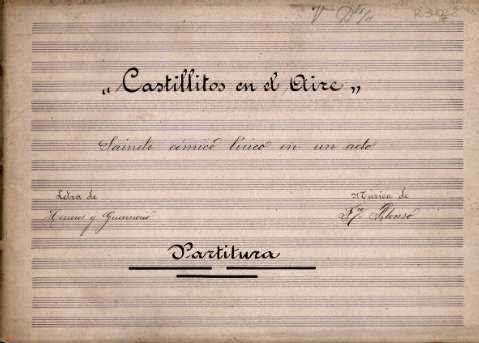 „Castillitos en el Aire„
Sainete cómico lírico en un acto
Letra de
Música de
y
Fco Alonso
Partitura